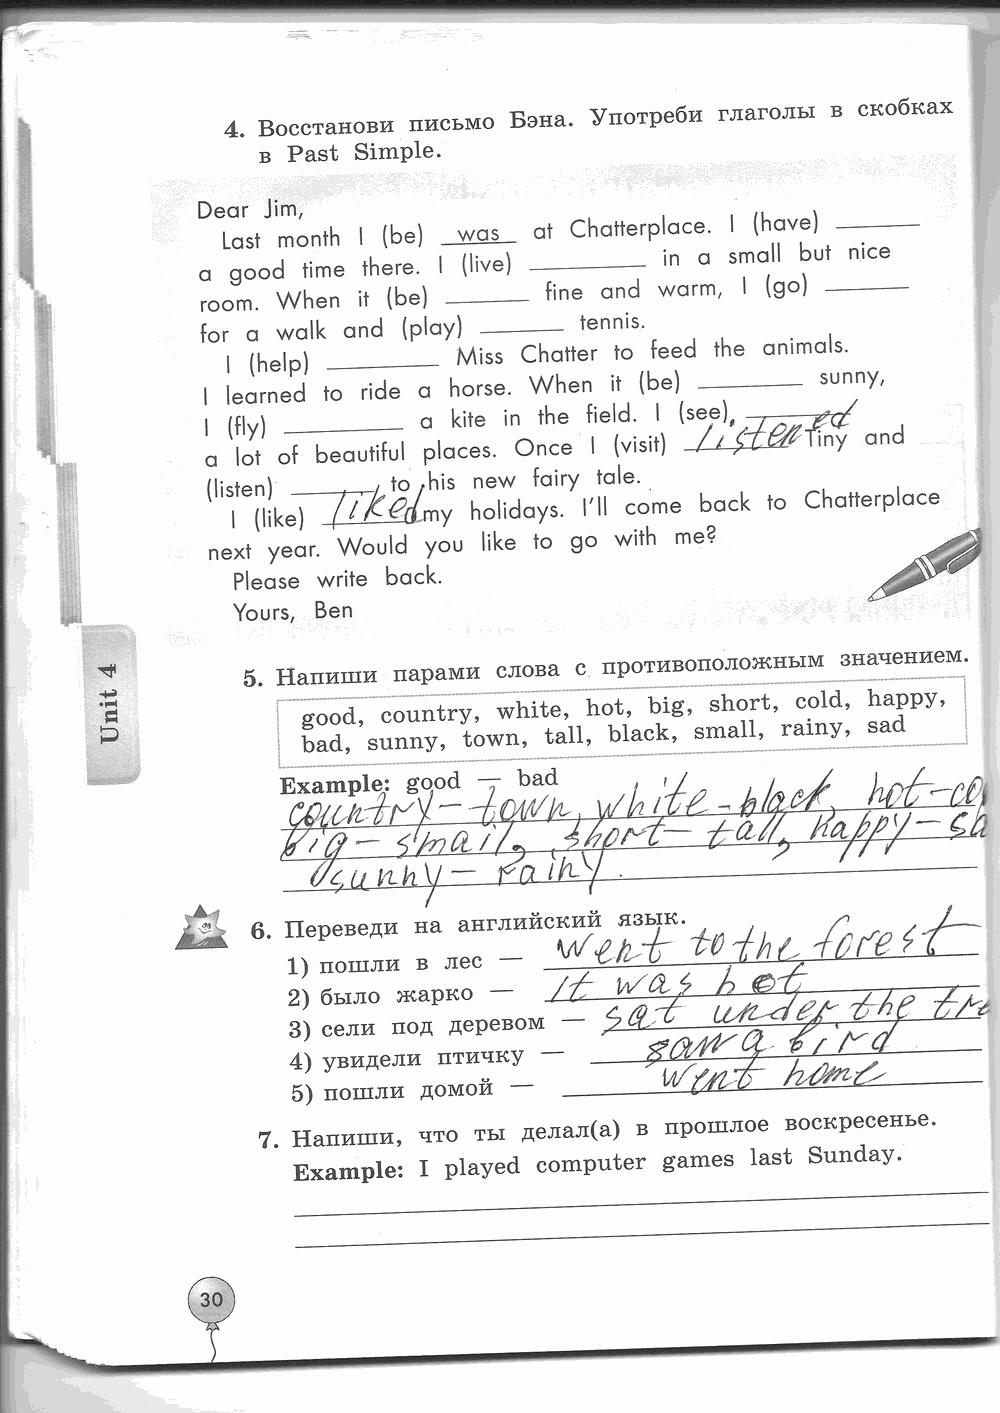 4. Восстанови письмо Бэна. Употреби глаголы в скобках
в Past Simple.
Dear Jim,
Last month I (be) was at Chatterplace. I (have) ______
a good time there. I (live) ______ in a small but nice
room. When it (be) ______ fine and warm, I (go) ______
for a walk and (play) ______ tennis.
I (help) ______ Miss Chatter to feed the animals.
I learned to ride a horse. When it (be) ______ sunny,
I (fly) ______ a kite in the field. I (see) ______
a lot of beautiful places. Once I (visit) listened Tiny and
(listen) ______ to his new fairy tale.
I (like) liked my holidays. I'll come back to Chatterplace
next year. Would you like to go with me?
Please write back.
Yours, Ben
Unit 4
5. Напиши парами слова с противоположным значением.
good, country, white, hot, big, short, cold, happy,
bad, sunny, town, tall, black, small, rainy, sad
Example: good — bad
country – town, white - black, hot - co
big – small, short – tall, happy – sa
sunny – rainy.
6. Переведи на английский язык.
1) пошли в лес — went to the forest
2) было жарко — It was hot
3) сели под деревом — sat under the tre
4) увидели птичку — saw a bird
5) пошли домой — went home
7. Напиши, что ты делал(а) в прошлое воскресенье.
Example: I played computer games last Sunday.
30